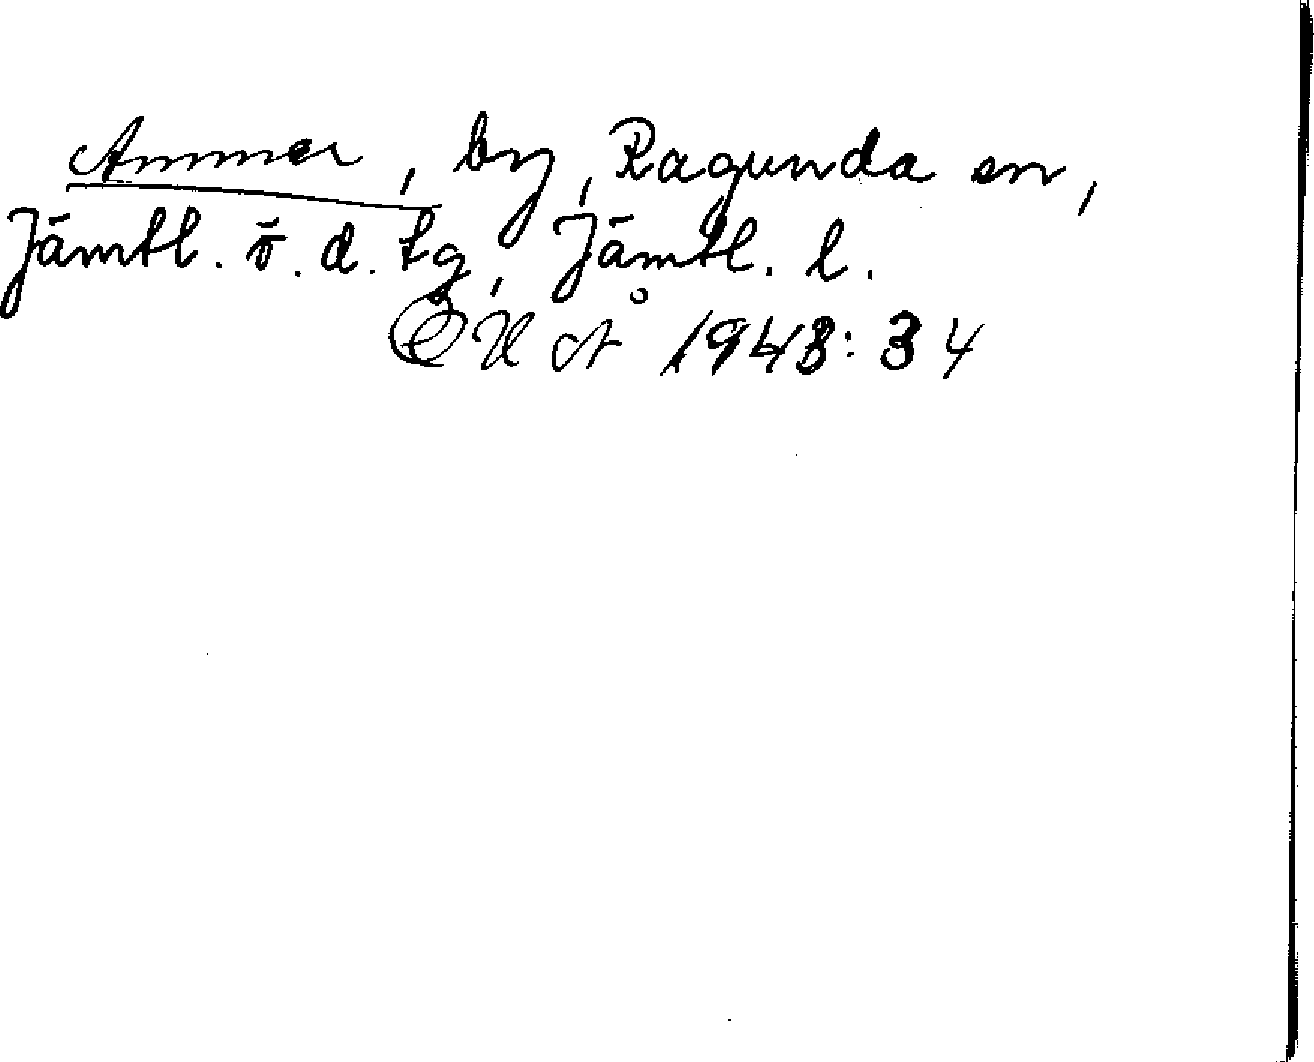 Ammer, by, Ragunda sn,
Jämtl. ö. d. tg, Jämtl. l.
OUÅ 1943: 34